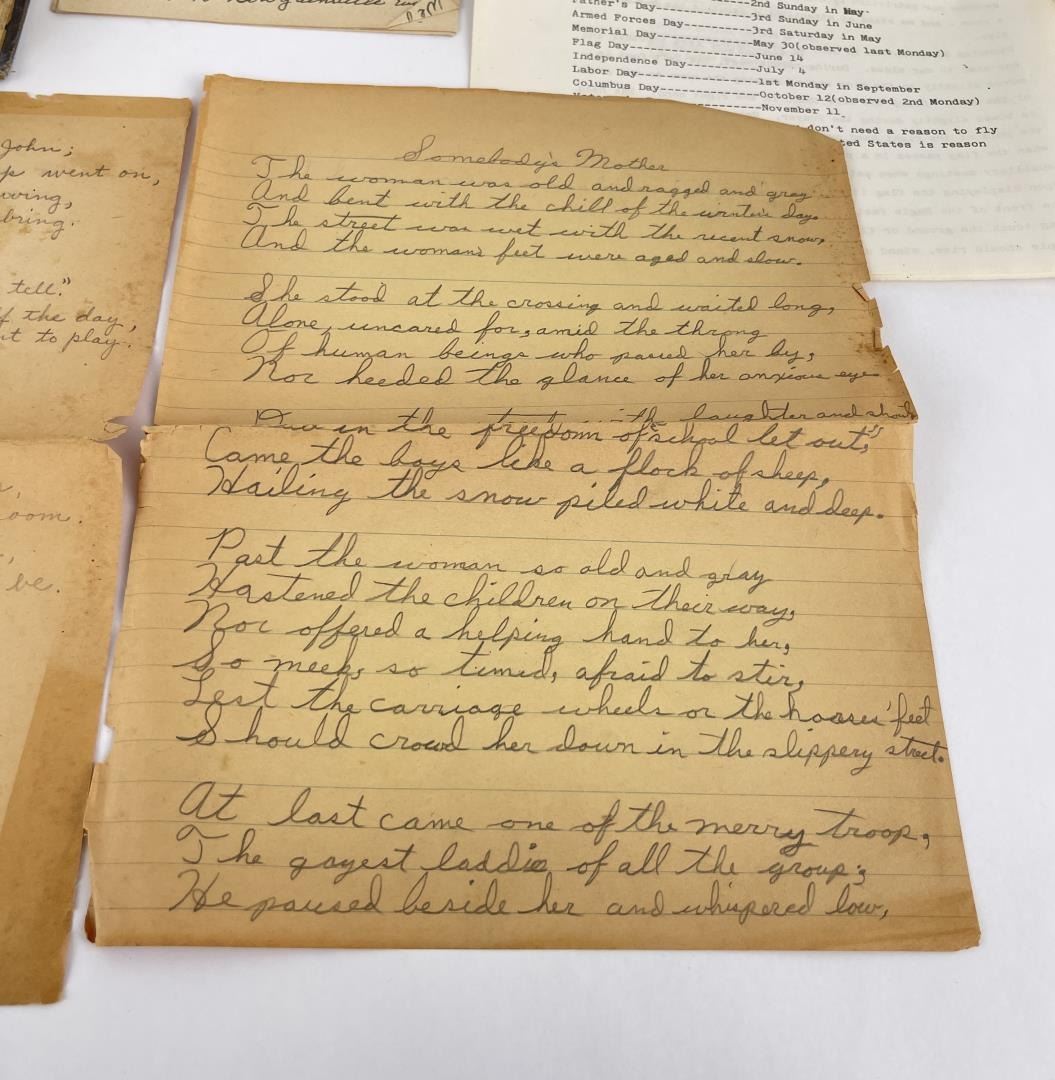 2nd Sunday in May
Father's Day----------3rd Sunday in June
Armed Forces Day----------3rd Saturday in May
Memorial Day----------May 30(observed last Monday)
Flag Day----------June 14
Independence Day----------July 4
Labor Day----------1st Monday in September
Columbus Day----------October 12(observed 2nd Monday)
----------November 11
don't need a reason to fly
States is reason
John;
went on,
bring.
tell."
the day,
to play.
oom.
be.
Somebody's Mother
The woman was old and ragged and gray
And bent with the chill of the winter's day.
The street was wet with the recent snow,
And the woman's feet were aged and slow.
She stood at the crossing and waited long,
Alone, uncared for, amid the throng
Of human beings who passed her by,
Nor heeded the glance of her anxious eye
the laughter and shout
in the freedom of "school let out,"
Came the boys like a flock of sheep,
Hailing the snow piled white and deep.
Past the woman so old and gray
Hastened the children on their way,
Nor offered a helping hand to her,
So meek, so timid, afraid to stir,
Lest the carriage wheels or the horses' feet
Should crowd her down in the slippery street.
At last came one of the merry troop,
The gayest laddie of all the group;
He paused beside her and whispered low,